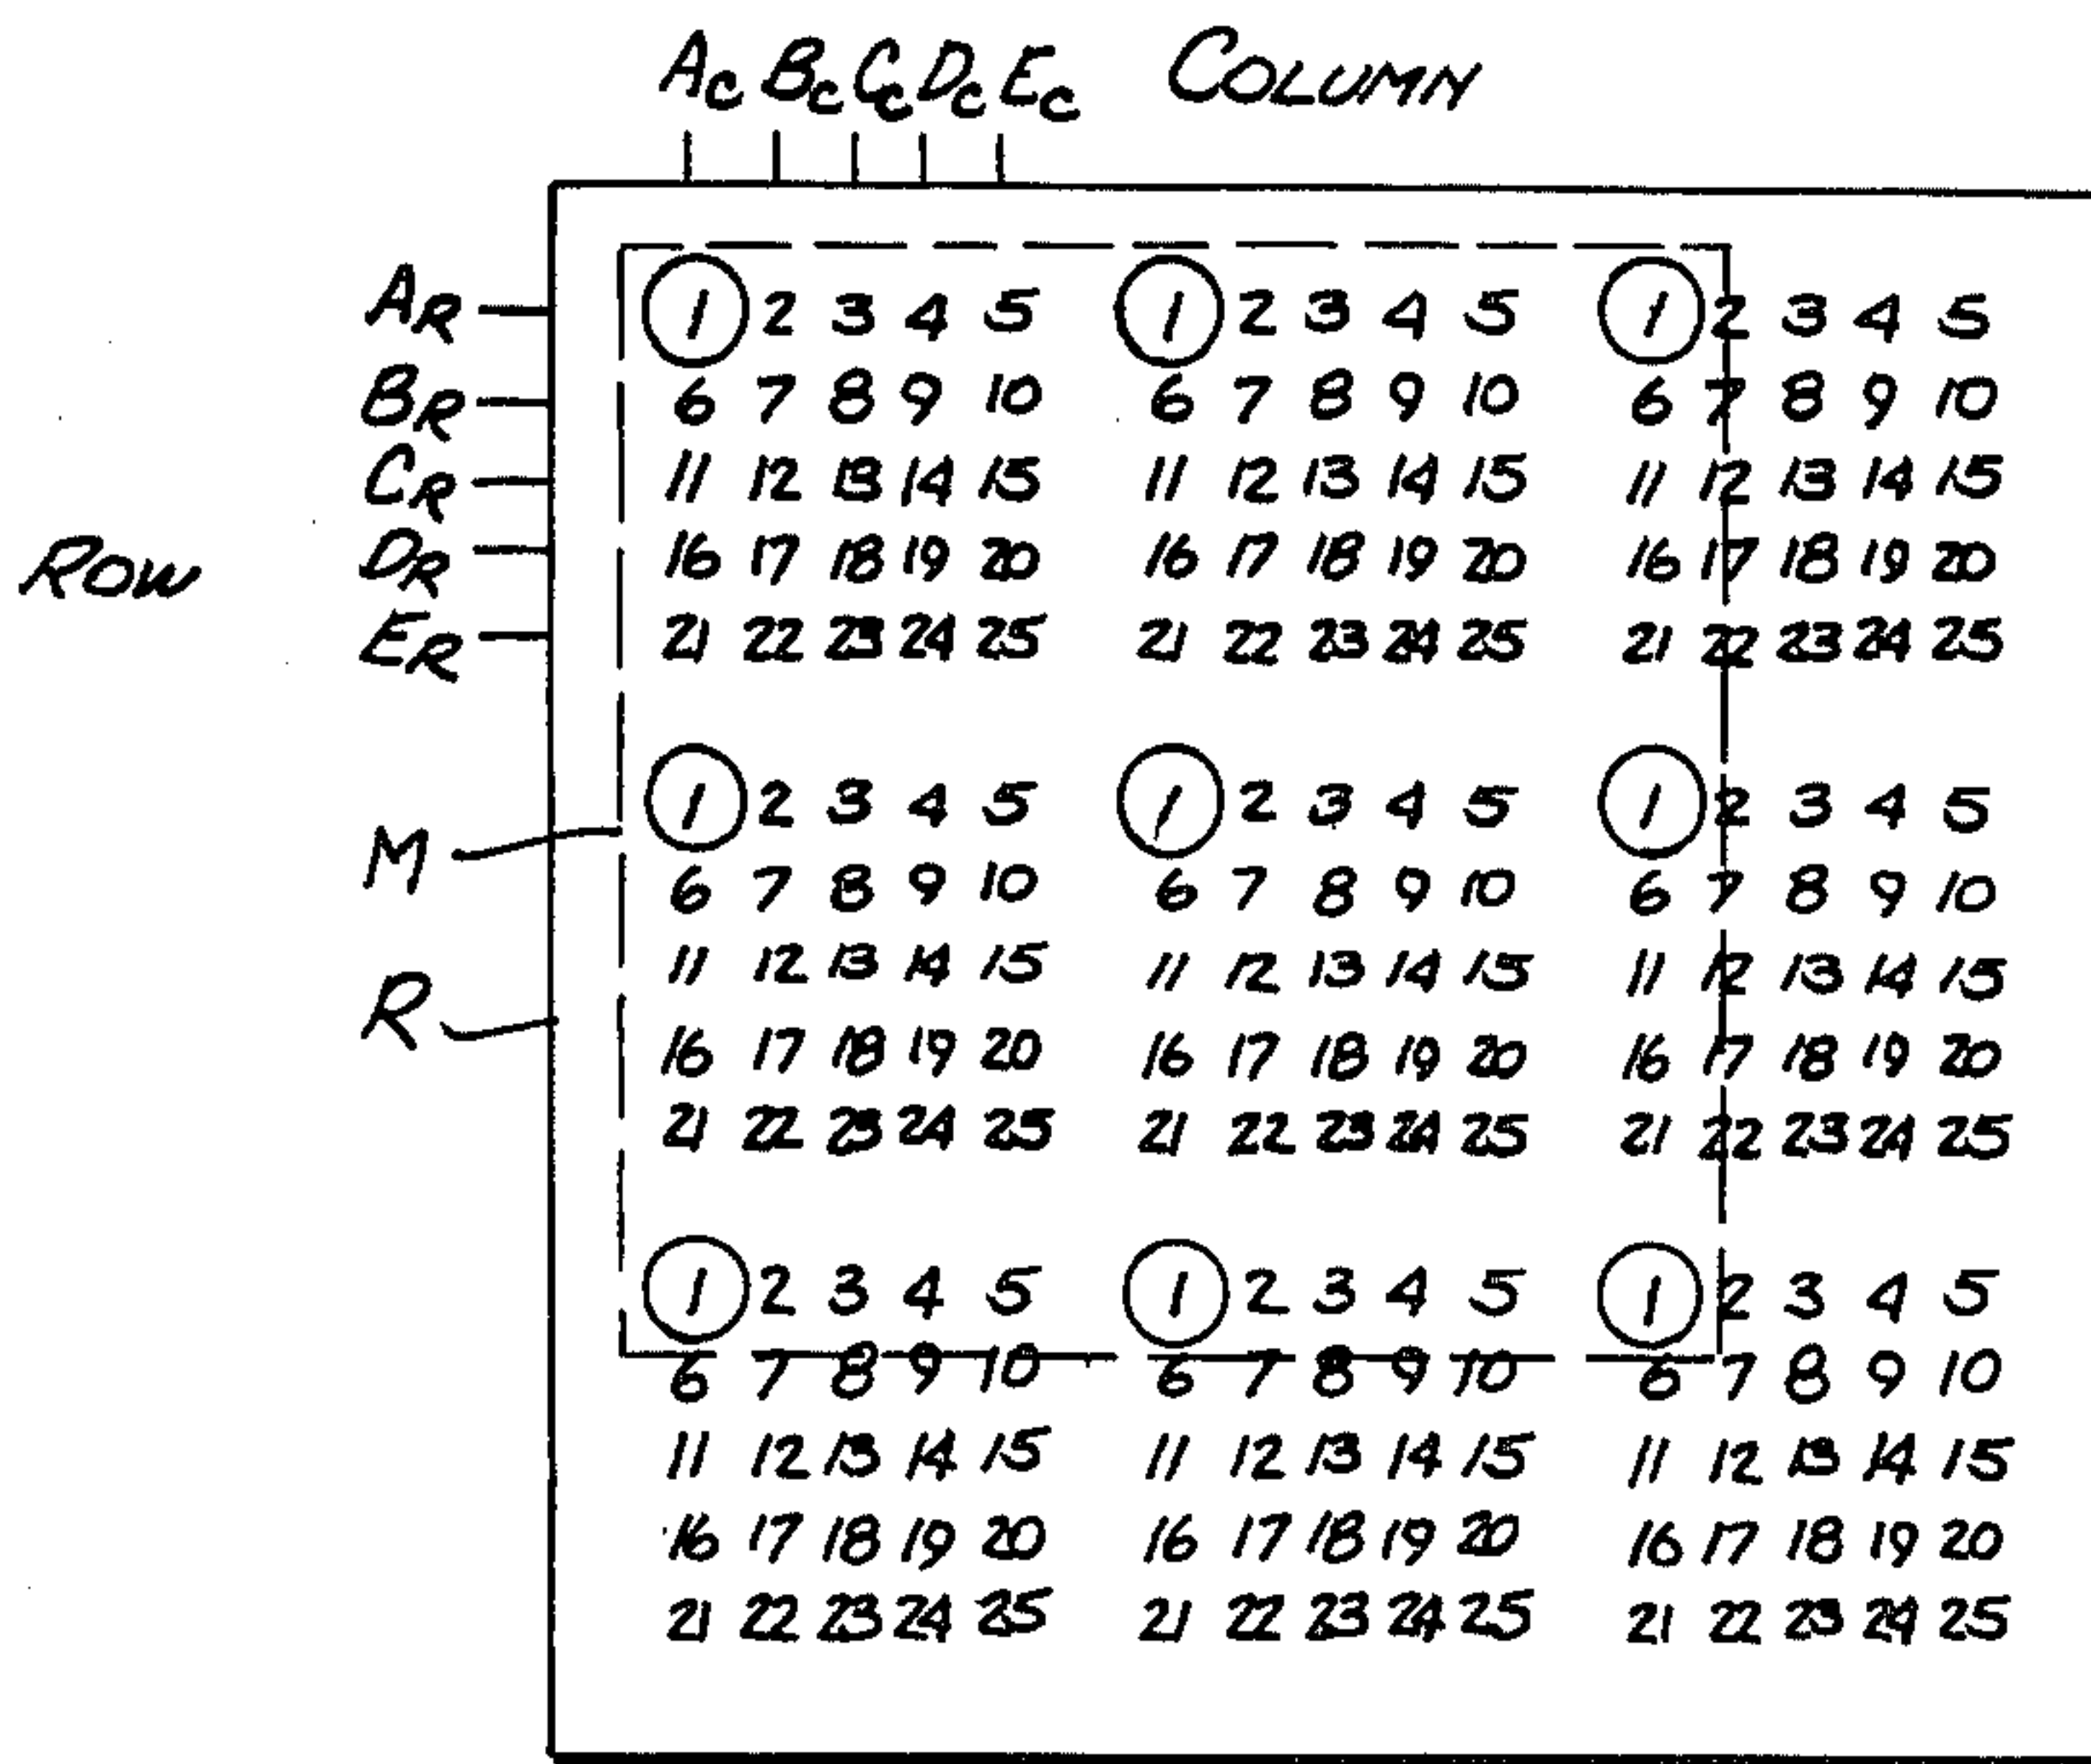 Ac Bc Cc Dc Ec COLUMN
AR 1 2 3 4 5 1 2 3 4 5 1 2 3 4 5
BR 6 7 8 9 10 6 7 8 9 10 6 7 8 9 10
CR 11 12 13 14 15 11 12 13 14 15 11 12 13 14 15
ROW DR 16 17 18 19 20 16 17 18 19 20 16 17 18 19 20
ER 21 22 23 24 25 21 22 23 24 25 21 22 23 24 25
1 2 3 4 5 1 2 3 4 5 1 2 3 4 5
M 6 7 8 9 10 6 7 8 9 10 6 7 8 9 10
11 12 13 14 15 11 12 13 14 15 11 12 13 14 15
R 16 17 18 19 20 16 17 18 19 20 16 17 18 19 20
21 22 23 24 25 21 22 23 24 25 21 22 23 24 25
1 2 3 4 5 1 2 3 4 5 1 2 3 4 5
6 7 8 9 10 6 7 8 9 10 6 7 8 9 10
11 12 13 14 15 11 12 13 14 15 11 12 13 14 15
16 17 18 19 20 16 17 18 19 20 16 17 18 19 20
21 22 23 24 25 21 22 23 24 25 21 22 23 24 25